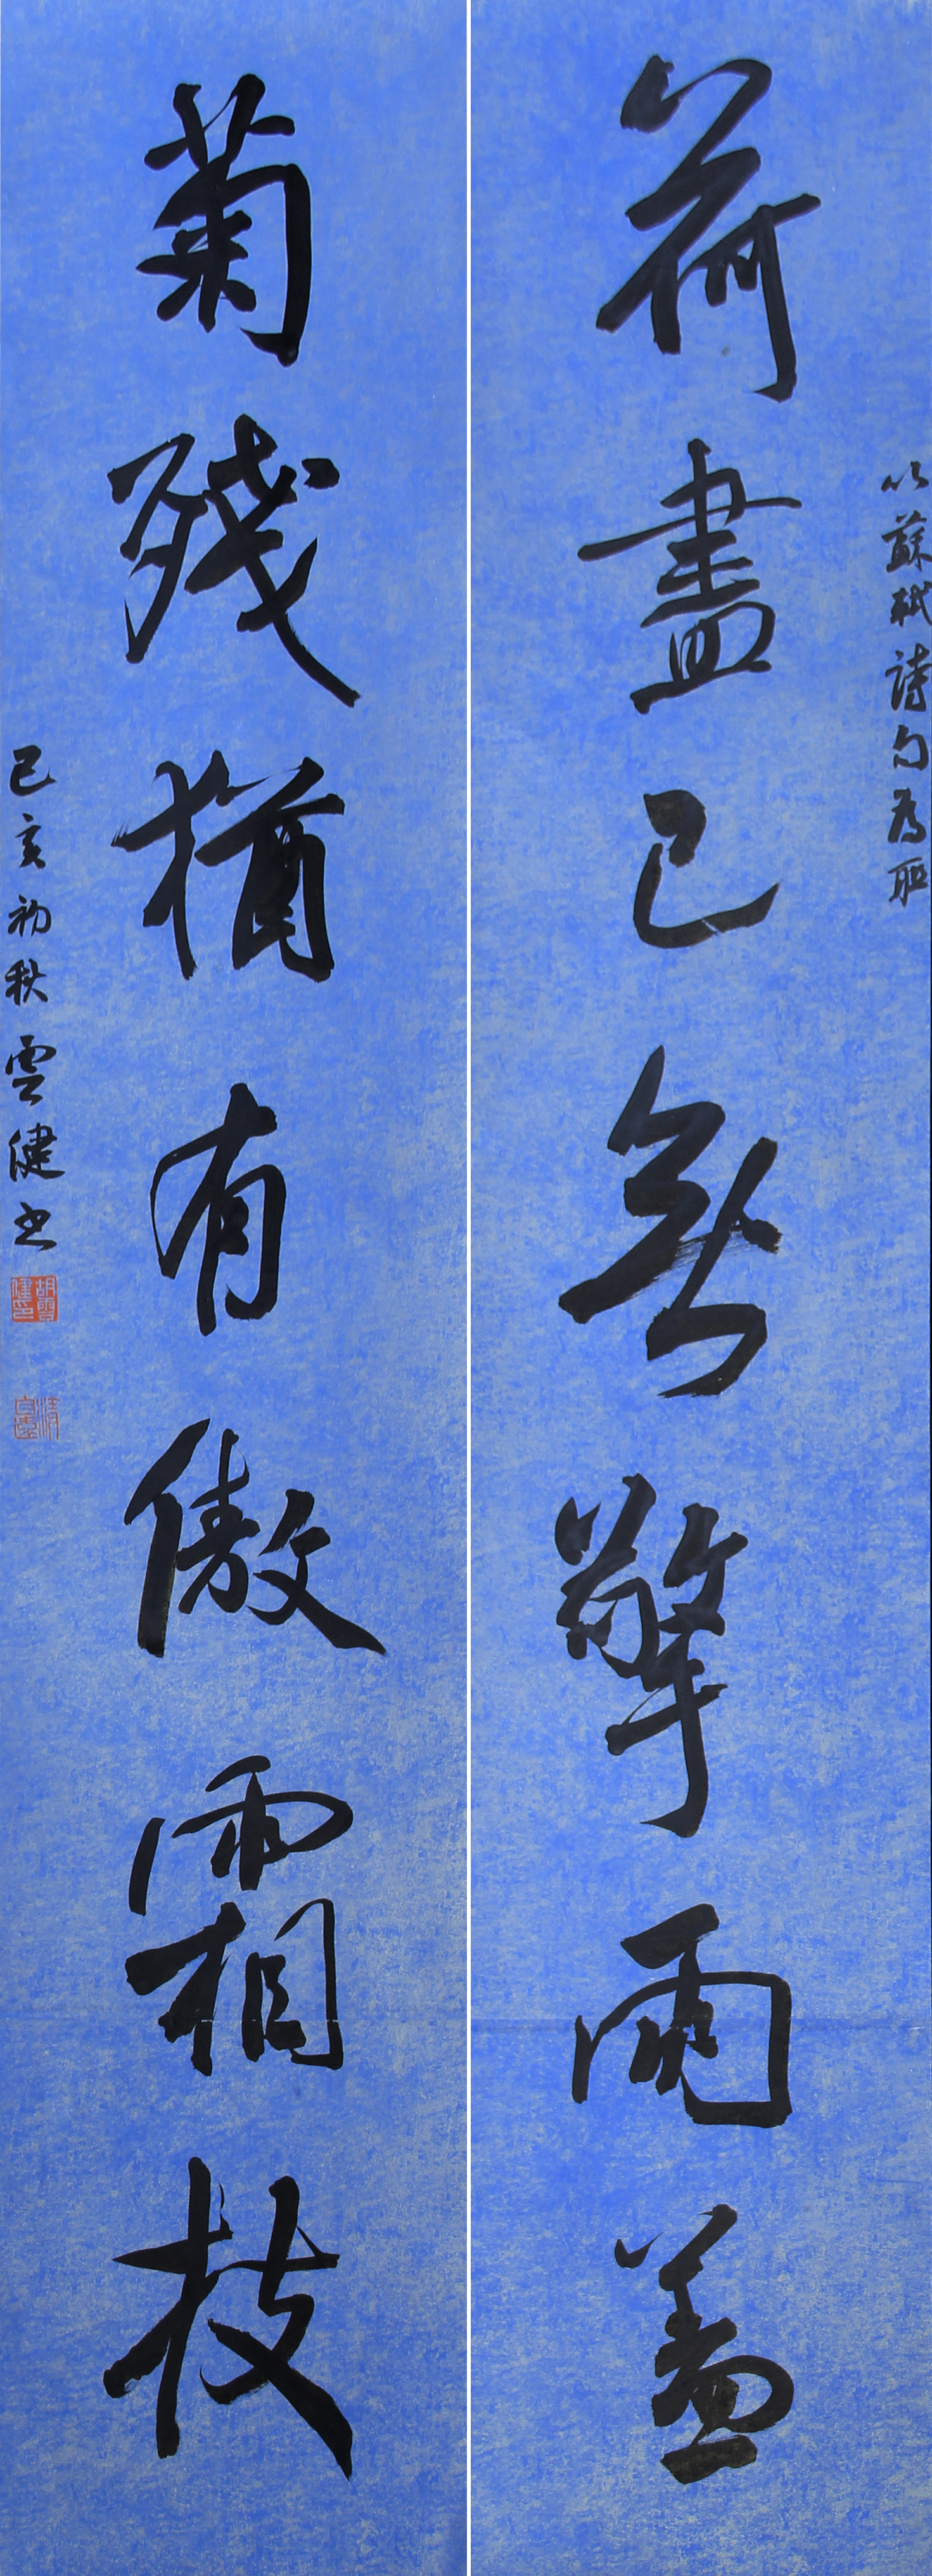 以蘇軾詩句為聯
荷盡已無擎雨蓋
菊殘猶有傲霜枝
己亥初秋雲健書
胡雲健印